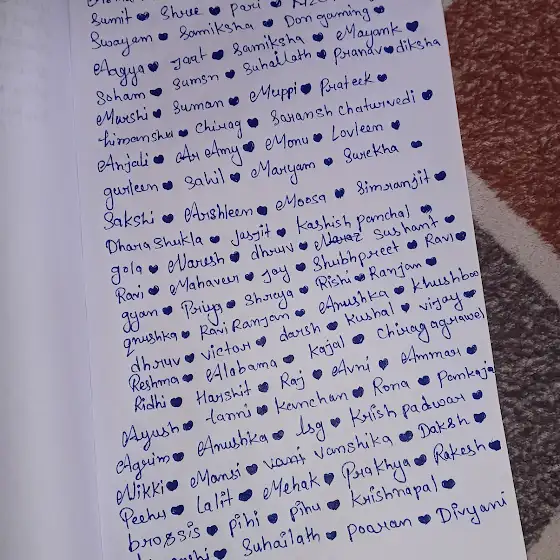 Sumit ♥ Shree ♥ Pari ♥
Swayam ♥ Samiksha ♥ Don gaming ♥
Aagya ♥ Jaat ♥ Samiksha ♥ Mayank ♥
Soham ♥ Suman ♥ Suhallath ♥ Pranav ♥ diksha
Murshi ♥ Suman ♥ Muppi ♥ Prateek ♥
himanshu ♥ Chirag ♥ Saransh Chaturvedi ♥
Anjali ♥ Ar Amy ♥ Monu ♥ Lovleen ♥
gurleen ♥ Sahil ♥ Maryam ♥ Surekha ♥
Sakshi ♥ Arshleen ♥ Moosa ♥ Simranjit ♥
Dhara Shukla ♥ Jasjit ♥ Kashish panchal ♥
gola ♥ Naresh ♥ dhruv ♥ Naraz Sushant ♥
Ravi ♥ Mahaveer ♥ Jay ♥ Shubhpreet ♥ Ravi ♥
gyan ♥ Priya ♥ Shreya ♥ Rishi ♥ Ranjan ♥
anushka ♥ Ravi Ranjan ♥ Anushka ♥ Khushboo
dhruv ♥ victor ♥ darsh ♥ Kushal ♥ virjay ♥
Reshma ♥ Alabama ♥ Kajal ♥ Chirag agrawal
Ridhi ♥ Harshit ♥ Raj ♥ Avni ♥ Ammar ♥
Ayush ♥ Janni ♥ Kanchan ♥ Rona ♥ Pankaja
Agrim ♥ Anushka ♥ Isg ♥ Krish padwar ♥
Nikki ♥ Mansi ♥ vanshika ♥ Daksh ♥
Peehu ♥ Lalit ♥ Mehak ♥ Prakhya ♥ Rakesh ♥
brossis ♥ pihi ♥ pihu ♥ Krishnapal ♥
♥ Suhailath ♥ Pooran ♥ Divyani